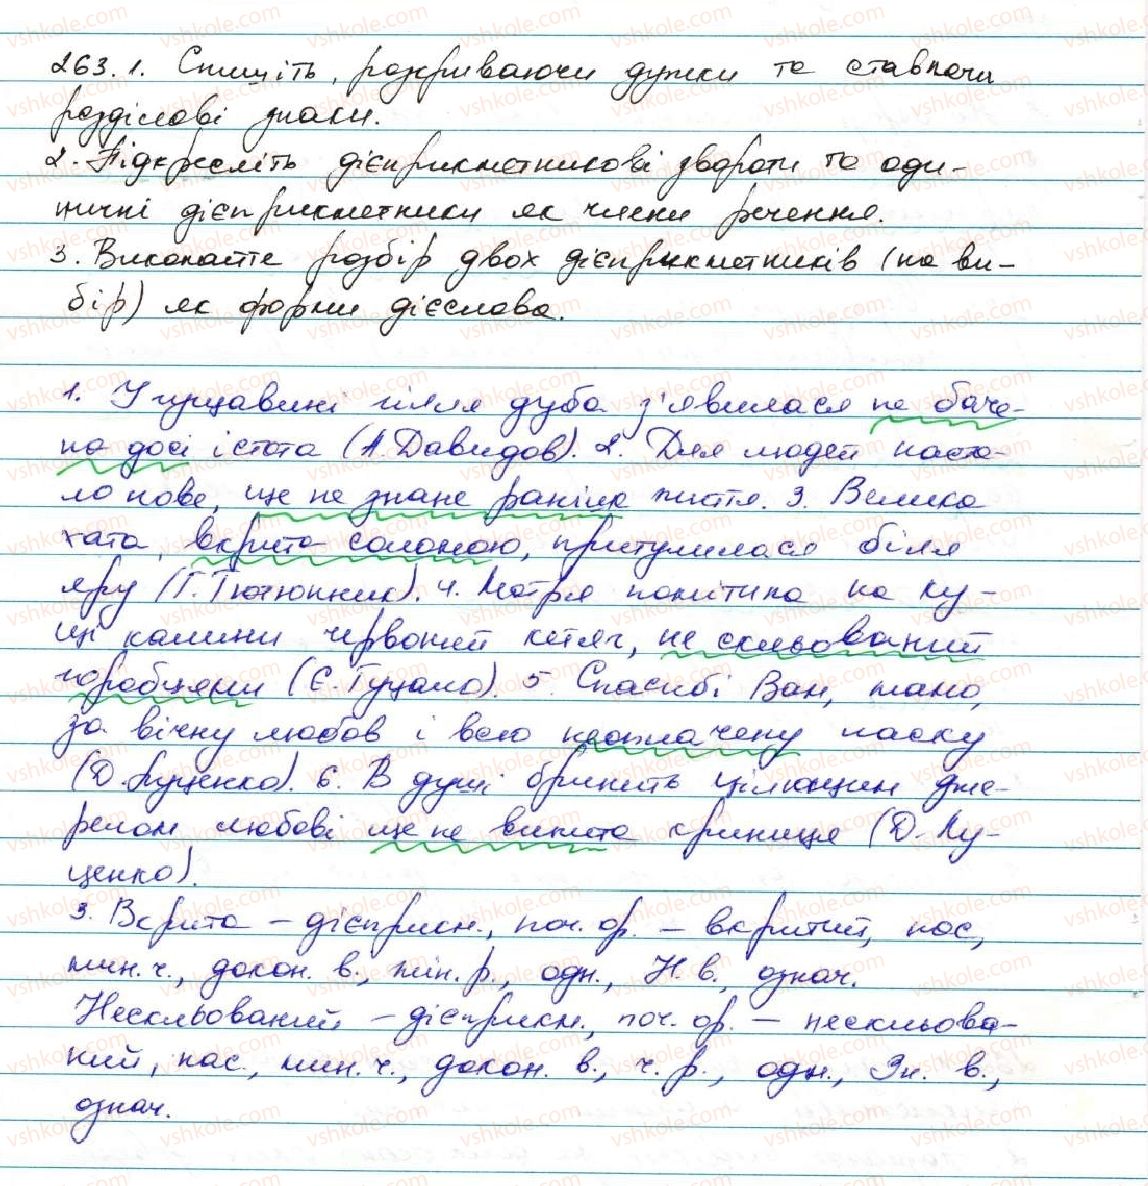 263. 1. Спишіть, розкриваючи дужки та ставлячи
розділові знаки.
2. Підкресліть дієприкметникові звороти та оди-
ничні дієприкметники як члени речення.
3. Виконайте розбір двох дієприкметників (на ви-
бір) як форми дієслова.
1. У гущавині гілля дуба з'явилася не баче-
на досі істота (А. Давидов). 2. Для людей наста-
ло нове, ще не знане раніше життя. 3. Велика
хата, вкрита соломою, притулилася біля
яру (Г. Тютюнник). 4. Мотря помітила на ку-
щі калини червоний кетяг, не скльований
горобцями (Є. Гуцало). 5. Спасибі Вам, мамо,
за вічну любов і всю неоплачену ласку
(Д. Луценко). 6. В душі бринить цілющим дже-
релом любові ще не випита криниця (Д. Лу-
ценко).
3. Вкрита – дієприкм., поч. ф. – вкритий, пас.,
мин. ч., докон. в., жін. р., одн., Н. в., означ.
Нескльований – дієприкм., поч. ф. – нескльова-
ний, пас., мин. ч., докон. в., ч. р., одн., Зн. в.,
означ.
vshkole.com